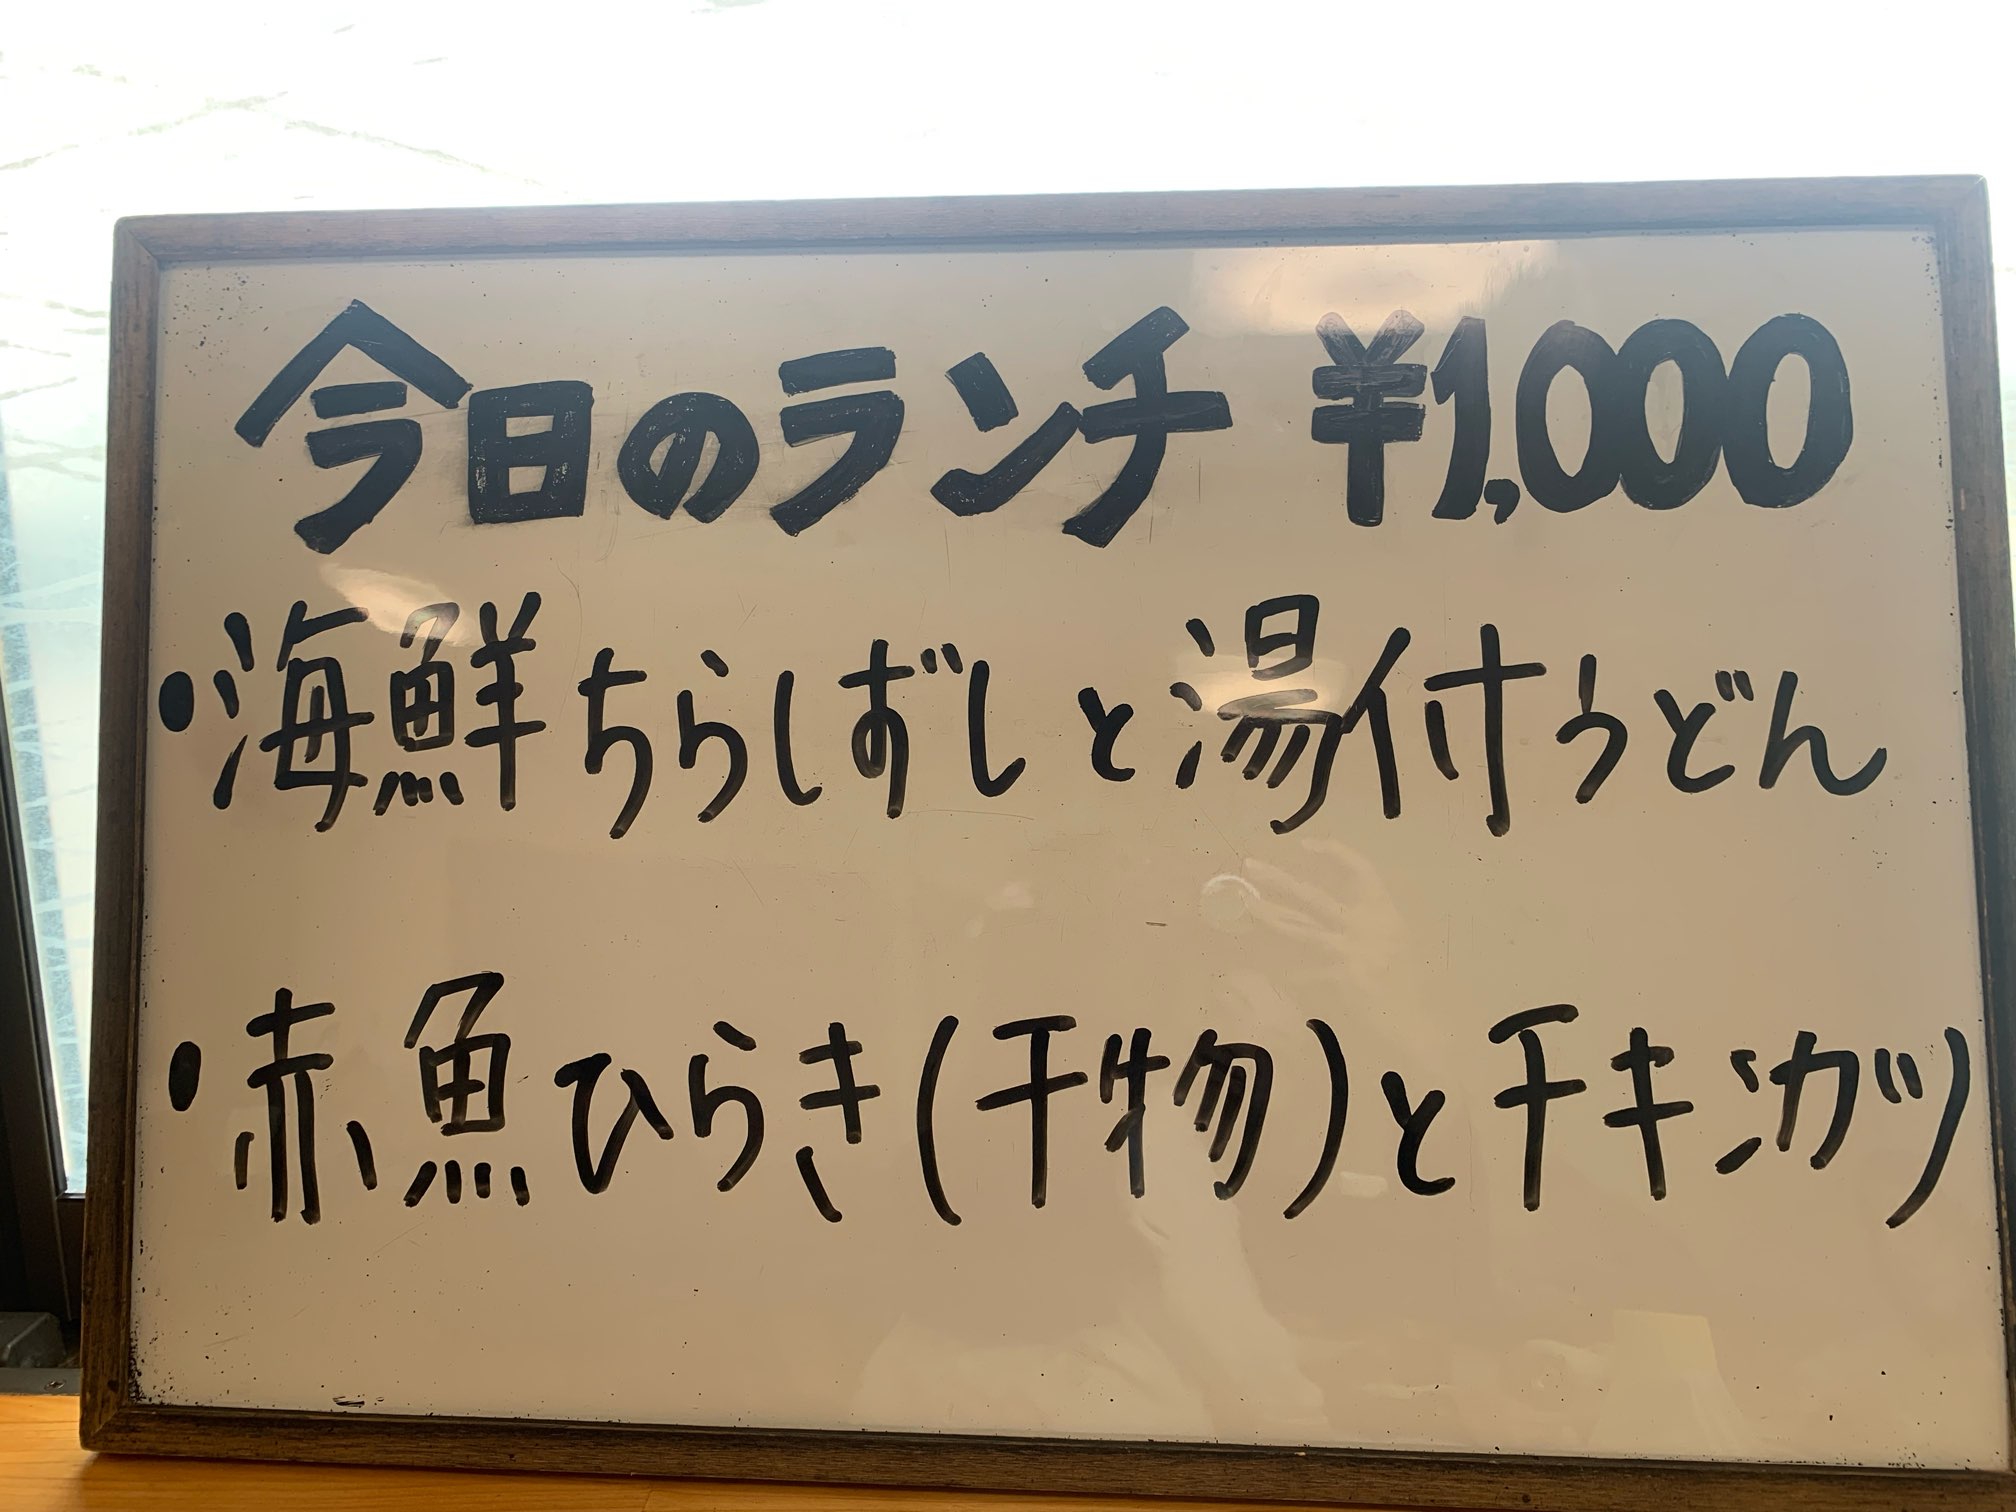 今日のランチ ¥1,000
・海鮮ちらしずしと湯付うどん
・赤魚ひらき(干物)とチキンカツ